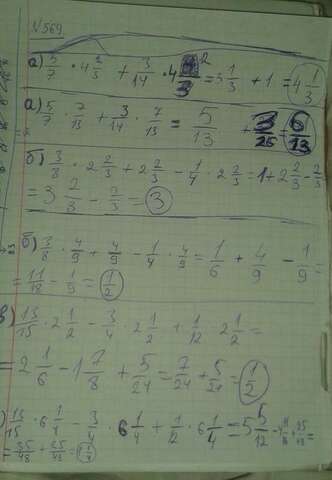 N 569.
а) 5/7 · 4 2/3 + 3/14 · 4 2/3 = 3 1/3 + 1 = 4 1/3
а) 5/7 · 7/13 + 3/14 · 7/13 = 5/13 + = 6/13
б) 3/8 · 2 2/3 + 2 2/3 - 1/4 · 2 2/3 = 1 + 2 2/3 - 2/3
= 3 2/3 - 2/3 = 3
б) 3/8 · 4/9 + 4/9 - 1/4 · 4/9 = 1/6 + 4/9 - 1/9 =
= 11/18 - 1/9 = 1/2
в) 13/15 · 2 1/2 - 3/4 · 2 1/2 + 1/12 · 2 1/2 =
= 2 1/6 - 1 7/8 + 5/24 = 7/24 + 5/24 = 1/2
) 13/15 · 6 1/4 - 3/4 · 6 1/4 + 1/2 · 6 1/4 = 5 5/12 - 4 11/16 + 25/48 =
= 35/48 + 25/48 = 1 1/4